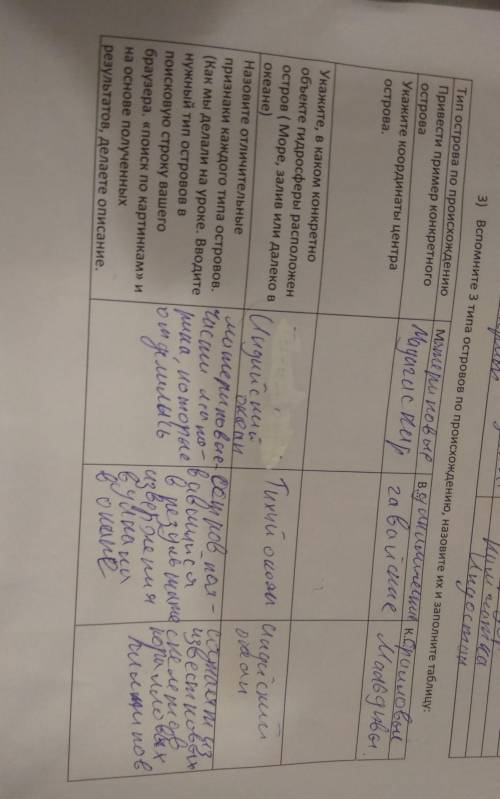 3) Вспомните 3 типа островов по происхождению, назовите их и заполните таблицу:
Тип острова по происхождению
Материковые
В
К
Привести пример конкретного
острова
Мадагаскар
гавайские
Мальдивы
Укажите координаты центра
острова.
Укажите, в каком конкретно
объекте гидросферы расположен
остров ( Море, залив или далеко в
океане)
Индийский
океан
Тихий океан
индийский
океан
Назовите отличительные
признаки каждого типа островов.
(Как мы делали на уроке. Вводите
нужный тип островов в
поисковую строку вашего
браузера. «поиск по картинкам» и
на основе полученных
результатов, делаете описание.
материковые-
части мате-
рика, которые
отделились
остров поя-
вившийся
в результате
извержения
вулкана
в океане
состоят из
известковых
скелетов
коралловых
полипов